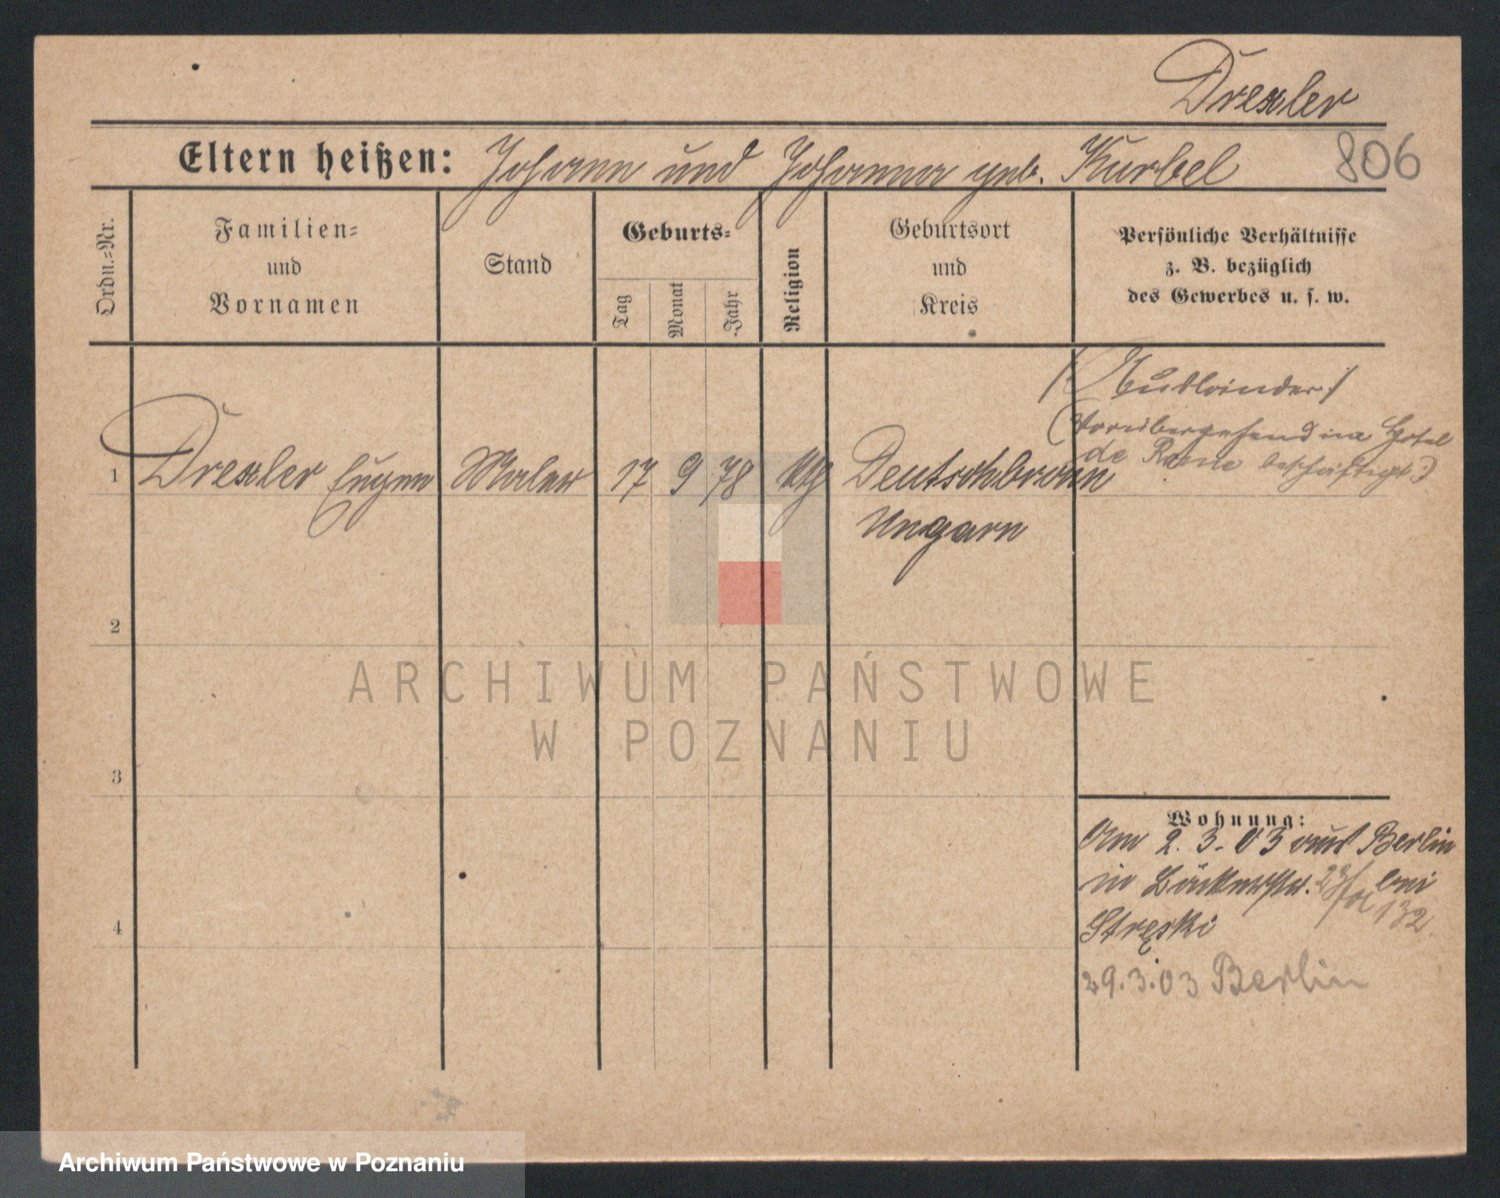 Drexler
Eltern heißen: Johann und Johanna geb. Kurbel
806
Ordn.=Nr.
Familien=
und
Vornamen
Stand
Geburts=
Tag
Monat
Jahr
Religion
Geburtsort
und
Kreis
Persönliche Verhältnisse
z. B. bezüglich
des Gewerbes u. s. w.
(Ausländer!)
(Vorübergehend im Hotel
de Rome beschäftigt)
1 Drexler Eugen Maler 17 9 78 Deutschbronn
Ungarn
2
3
4
ARCHIWUM PAŃSTWOWE
W POZNANIU
Wohnung:
Am 2. 3. 03 aus Berlin
in Bäckerstr. bei
Stręski
132.
29.3.03 Berlin
Archiwum Państwowe w Poznaniu